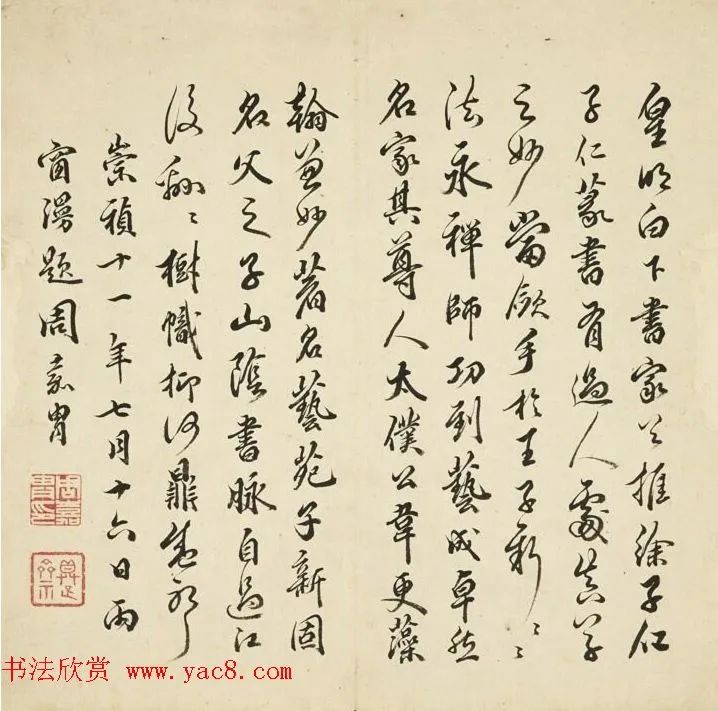 皇明白下書家公推徐子仁
子仁篆書有過人處真草
之妙當歛手於王子新〻
法永禪師功到藝成卓然
名家其尊人太僕公韋更藻
翰並妙著名藝苑子新固
名父之子山陰書脉自過江
後翩〻樹幟抑何鼎盛耶
崇禎十一年七月十六日雨
窗漫題周嘉胄
周嘉
胄印
书法欣赏 www.yac8.com